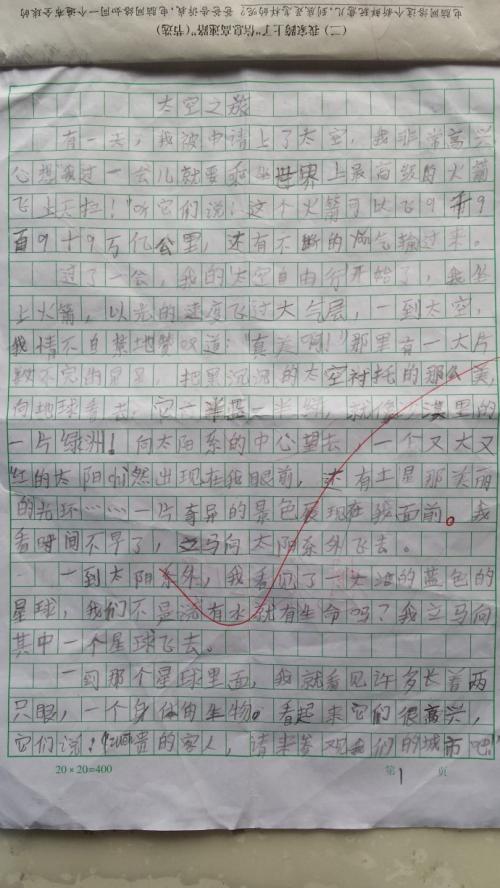 电脑网络这个新鲜玩意儿,到底是怎样的呢?爸爸告诉我,电脑网络同如一个遍布全球的
(二)我家跨上了“信息高速路”(节选)
太空之旅
有一天,我被申请上了太空,我非常高兴
心想我过一会儿就要乘坐世界上最高级的火箭
飞上天拦!听它们说:这个火箭可以飞9千9
百9十9万亿公里,还有不断的氧气输过来。
过了一会,我的太空自由行开始了,我坐
上火箭,以光的速度飞过大气层,一到太空,
我情不自禁地赞叹道:“真美啊!”那里有一大片
数不完的星星,把黑沉沉的太空衬托的那么美,
向地球看去,它一半蓝一半绿,就像沙漠里的
一片绿洲!向太阳系的中心望去,一个又大又
红的太阳chi然出现在我眼前,还有土星那美丽
的光环……一片奇异的景色展现在我面前。我
看时间不早了,立马向太阳系外飞去。
一到太阳系外,我看见了一大的蓝色的
星球,我们不是说有水就有生命吗?我立马向
其中一个星球飞去。
一到那个星球里面,我就看见许多长着两
只眼,一个身体的生物。看起来它们很高兴,
它们说:贵的家人,请来参观我们的城市吧!”
20×20=400
第1页